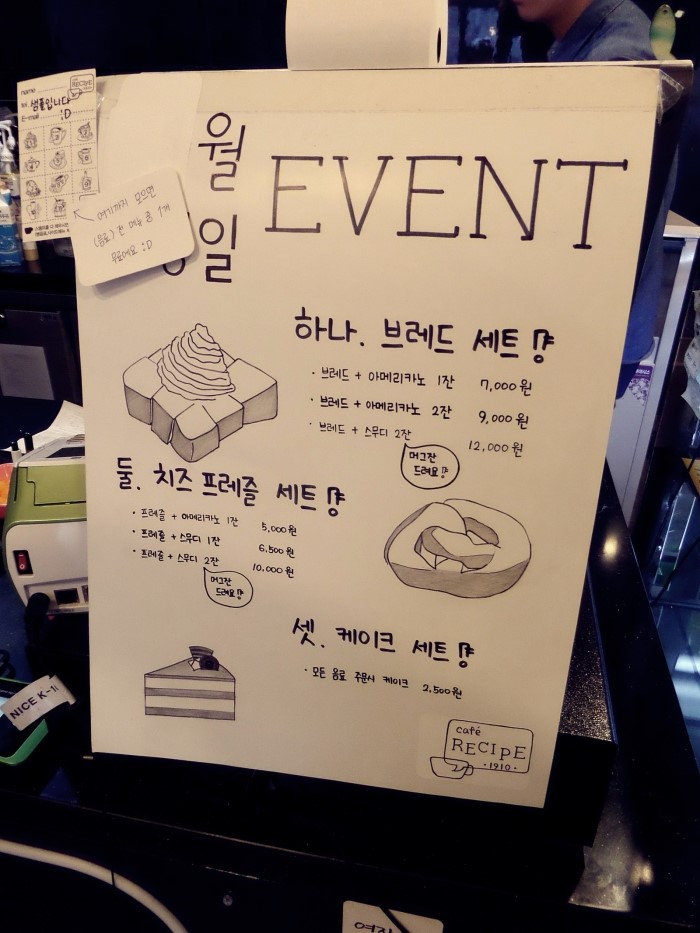 name
샘플입니다
E-mail :D
café RECIPE
여기까지 모으면
(음료) 한 메뉴 중 1개
무료에요 :D
월
일
EVENT
하나. 브레드 세트
· 브레드 + 아메리카노 1잔 7,000원
· 브레드 + 아메리카노 2잔 9,000원
· 브레드 + 스무디 2잔 12,000원
머그잔
드려요!
둘. 치즈 프레즐 세트
· 프레즐 + 아메리카노 1잔 5,000원
· 프레즐 + 스무디 1잔 6,500원
· 프레즐 + 스무디 2잔 10,000원
머그잔
드려요!
셋. 케이크 세트
· 모든 음료 주문시 케이크 2,500원
café
RECIPE
·1910·
NICE K-1